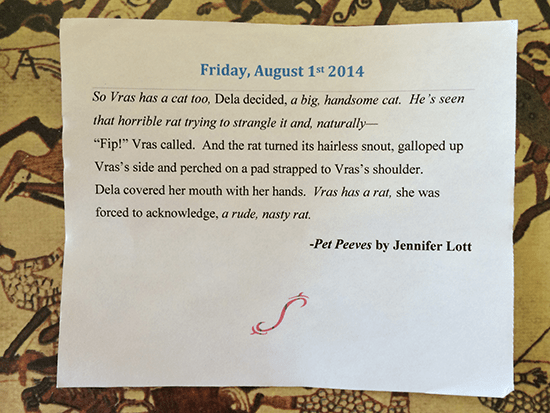 Friday, August 1st 2014
So Vras has a cat too, Dela decided, a big, handsome cat.  He's seen
that horrible rat trying to strangle it and, naturally—
“Fip!” Vras called.  And the rat turned its hairless snout, galloped up
Vras's side and perched on a pad strapped to Vras's shoulder.
Dela covered her mouth with her hands.  Vras has a rat, she was
forced to acknowledge, a rude, nasty rat.
-Pet Peeves by Jennifer Lott